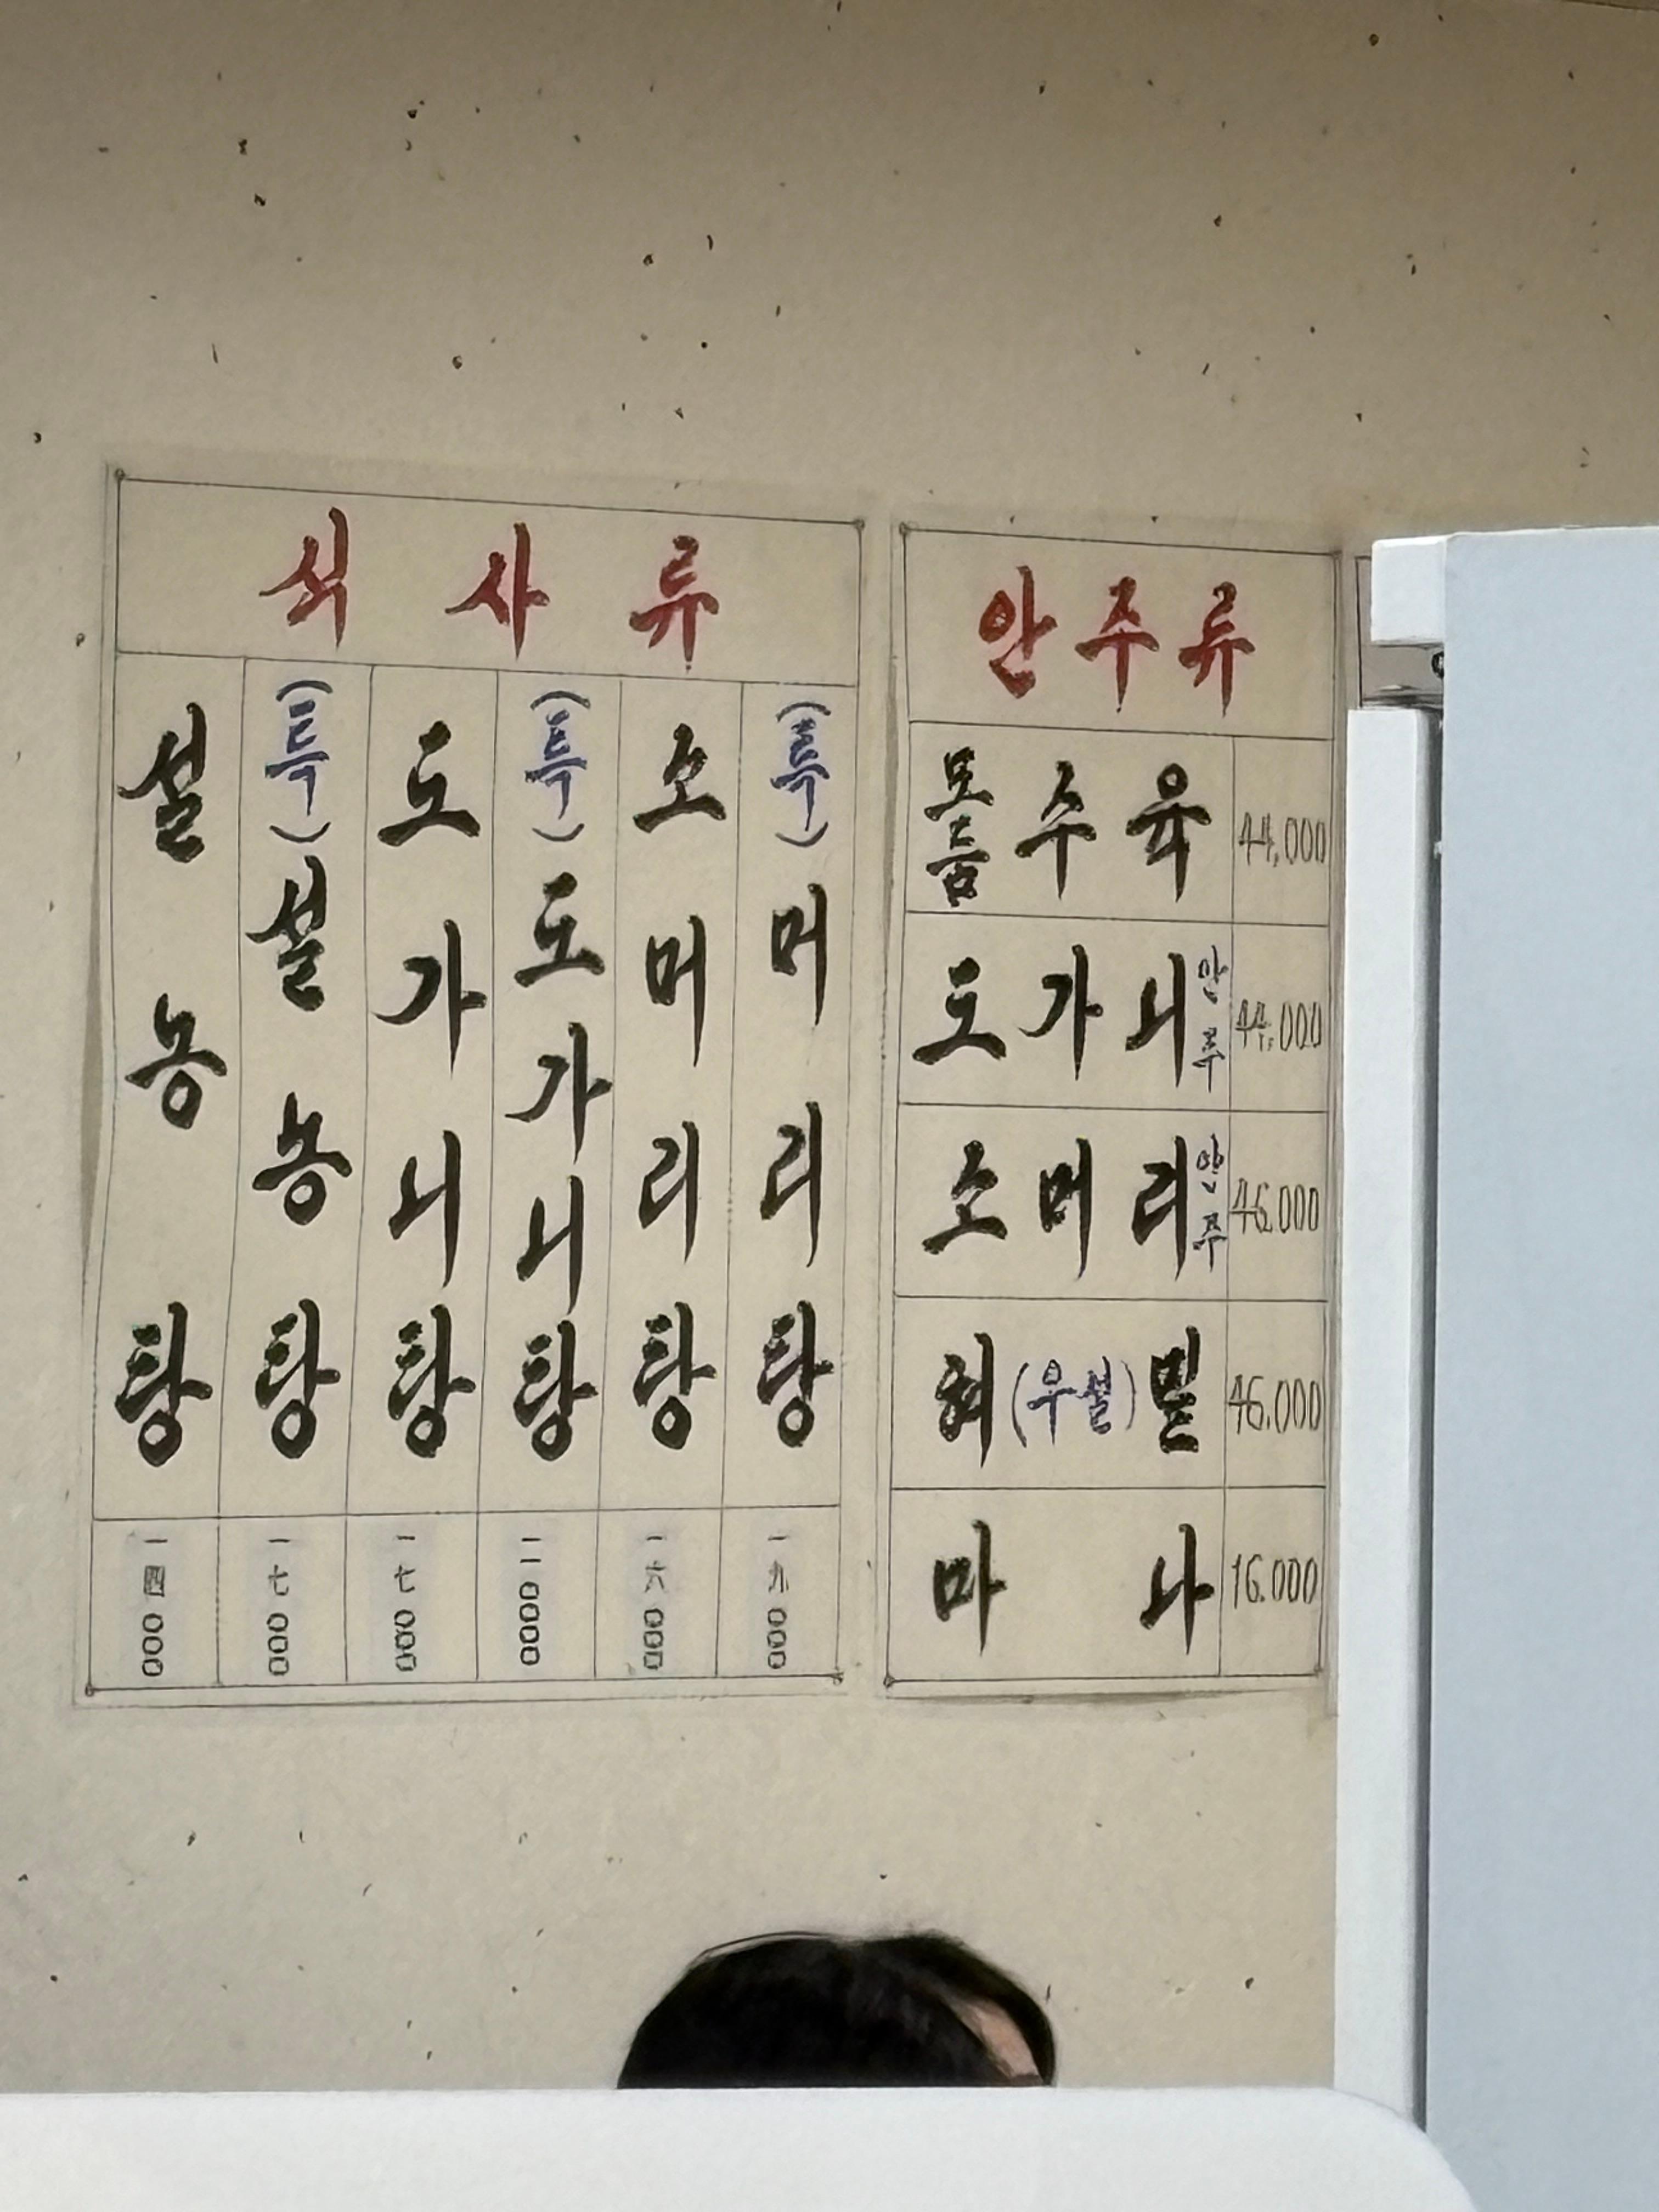 식사류
설농탕
一四000
(특)설농탕
一七000
도가니탕
一七000
(특)도가니탕
二一0000
소머리탕
一六000
(특)머리탕
一九000
안주류
모듬수육 44,000
도가니안주 44,000
소머리안주 46,000
혀(우설)밑 46,000
마나 16,000